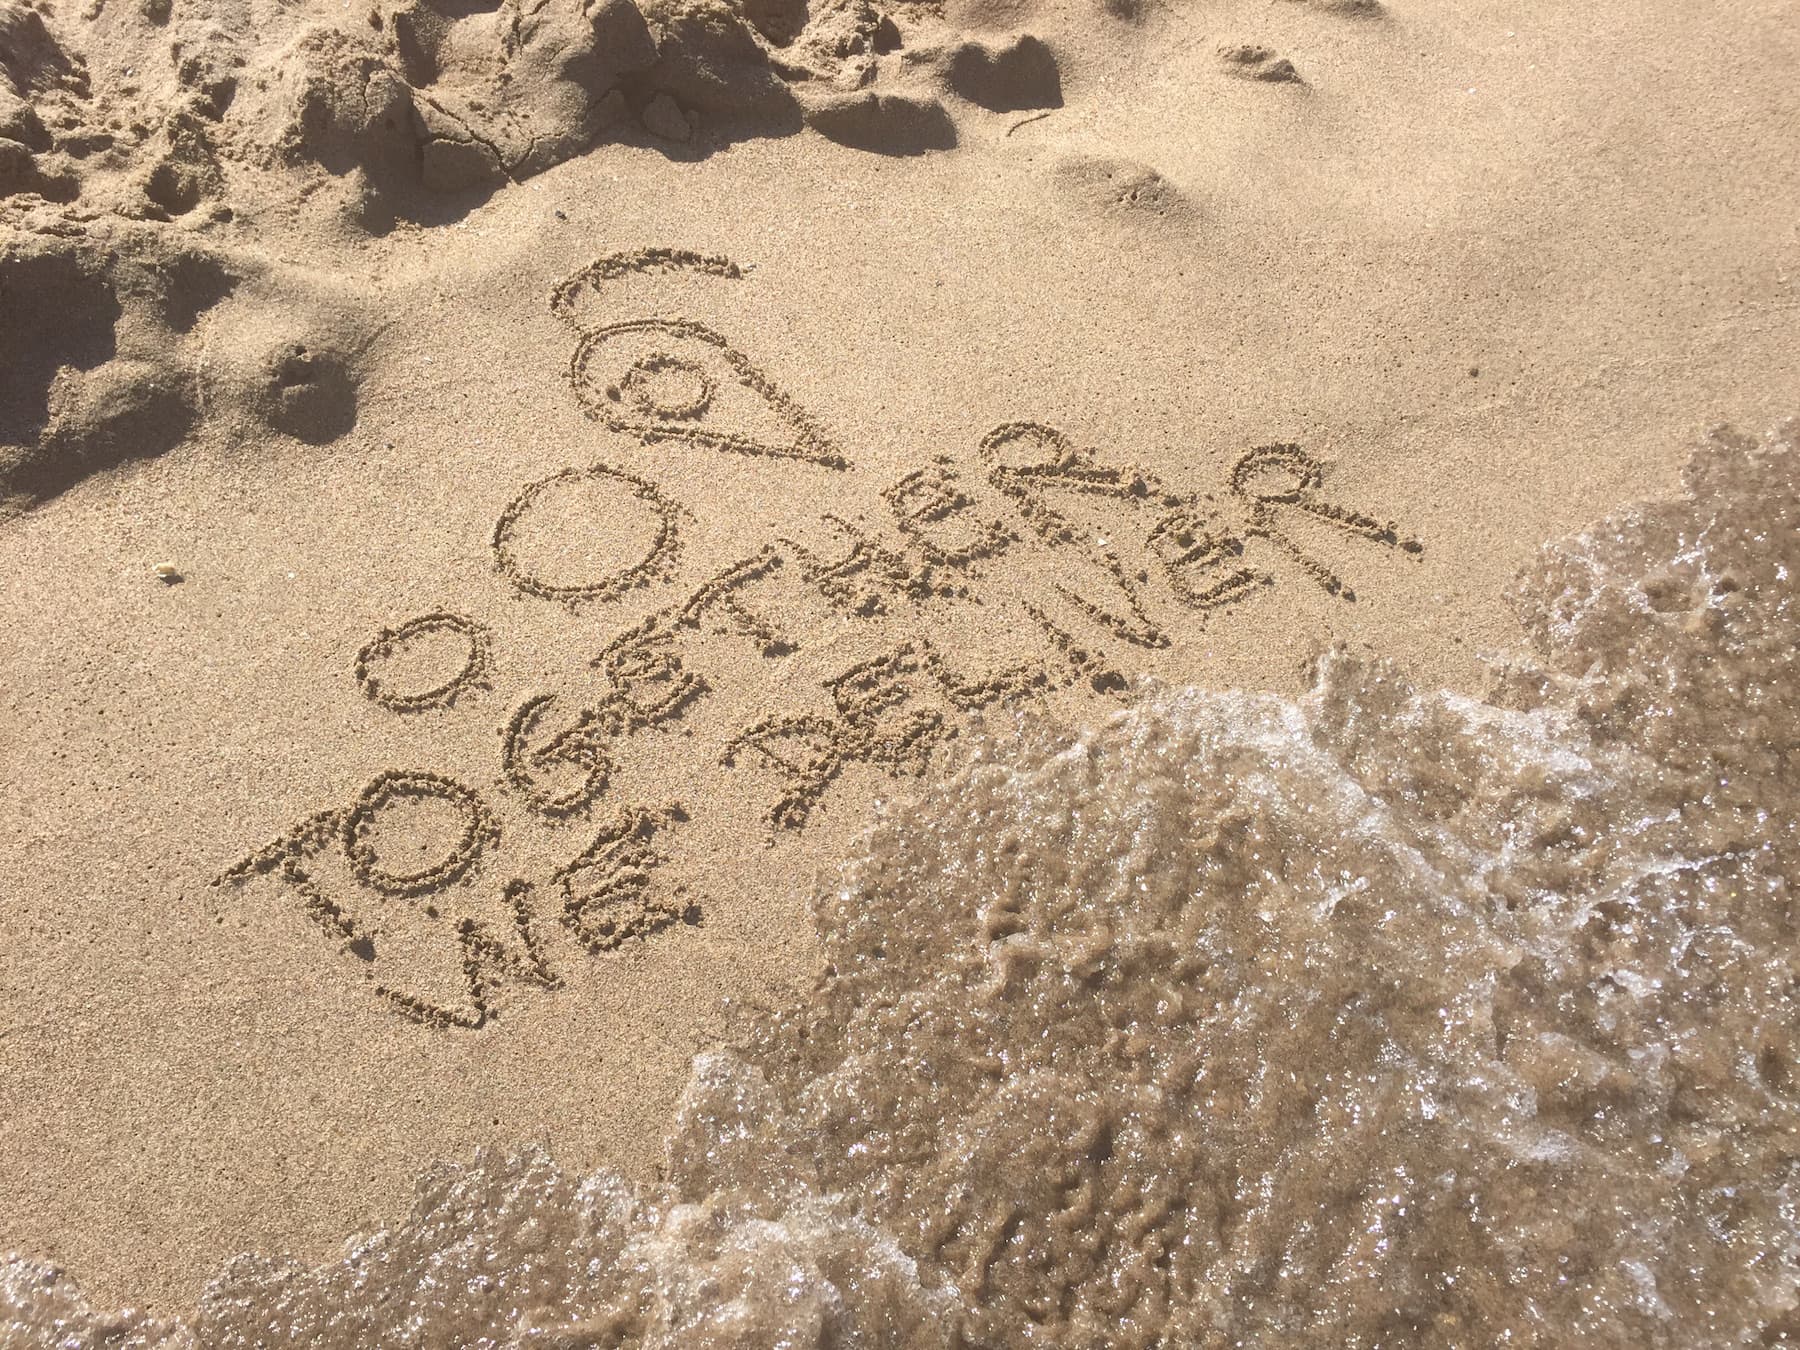 TOGETHER
WE DELIVER